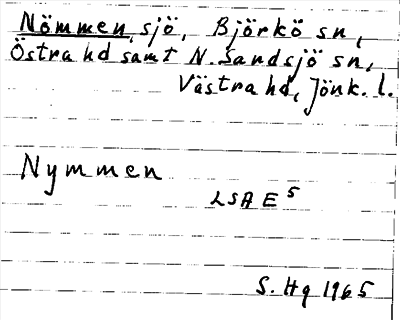 Nömmen, sjö, Björkö sn,
Östra hd samt N. Sandsjö sn,
Västra hd, Jönk. l.
Nymmen
LSA E 5
S. Hg 1965